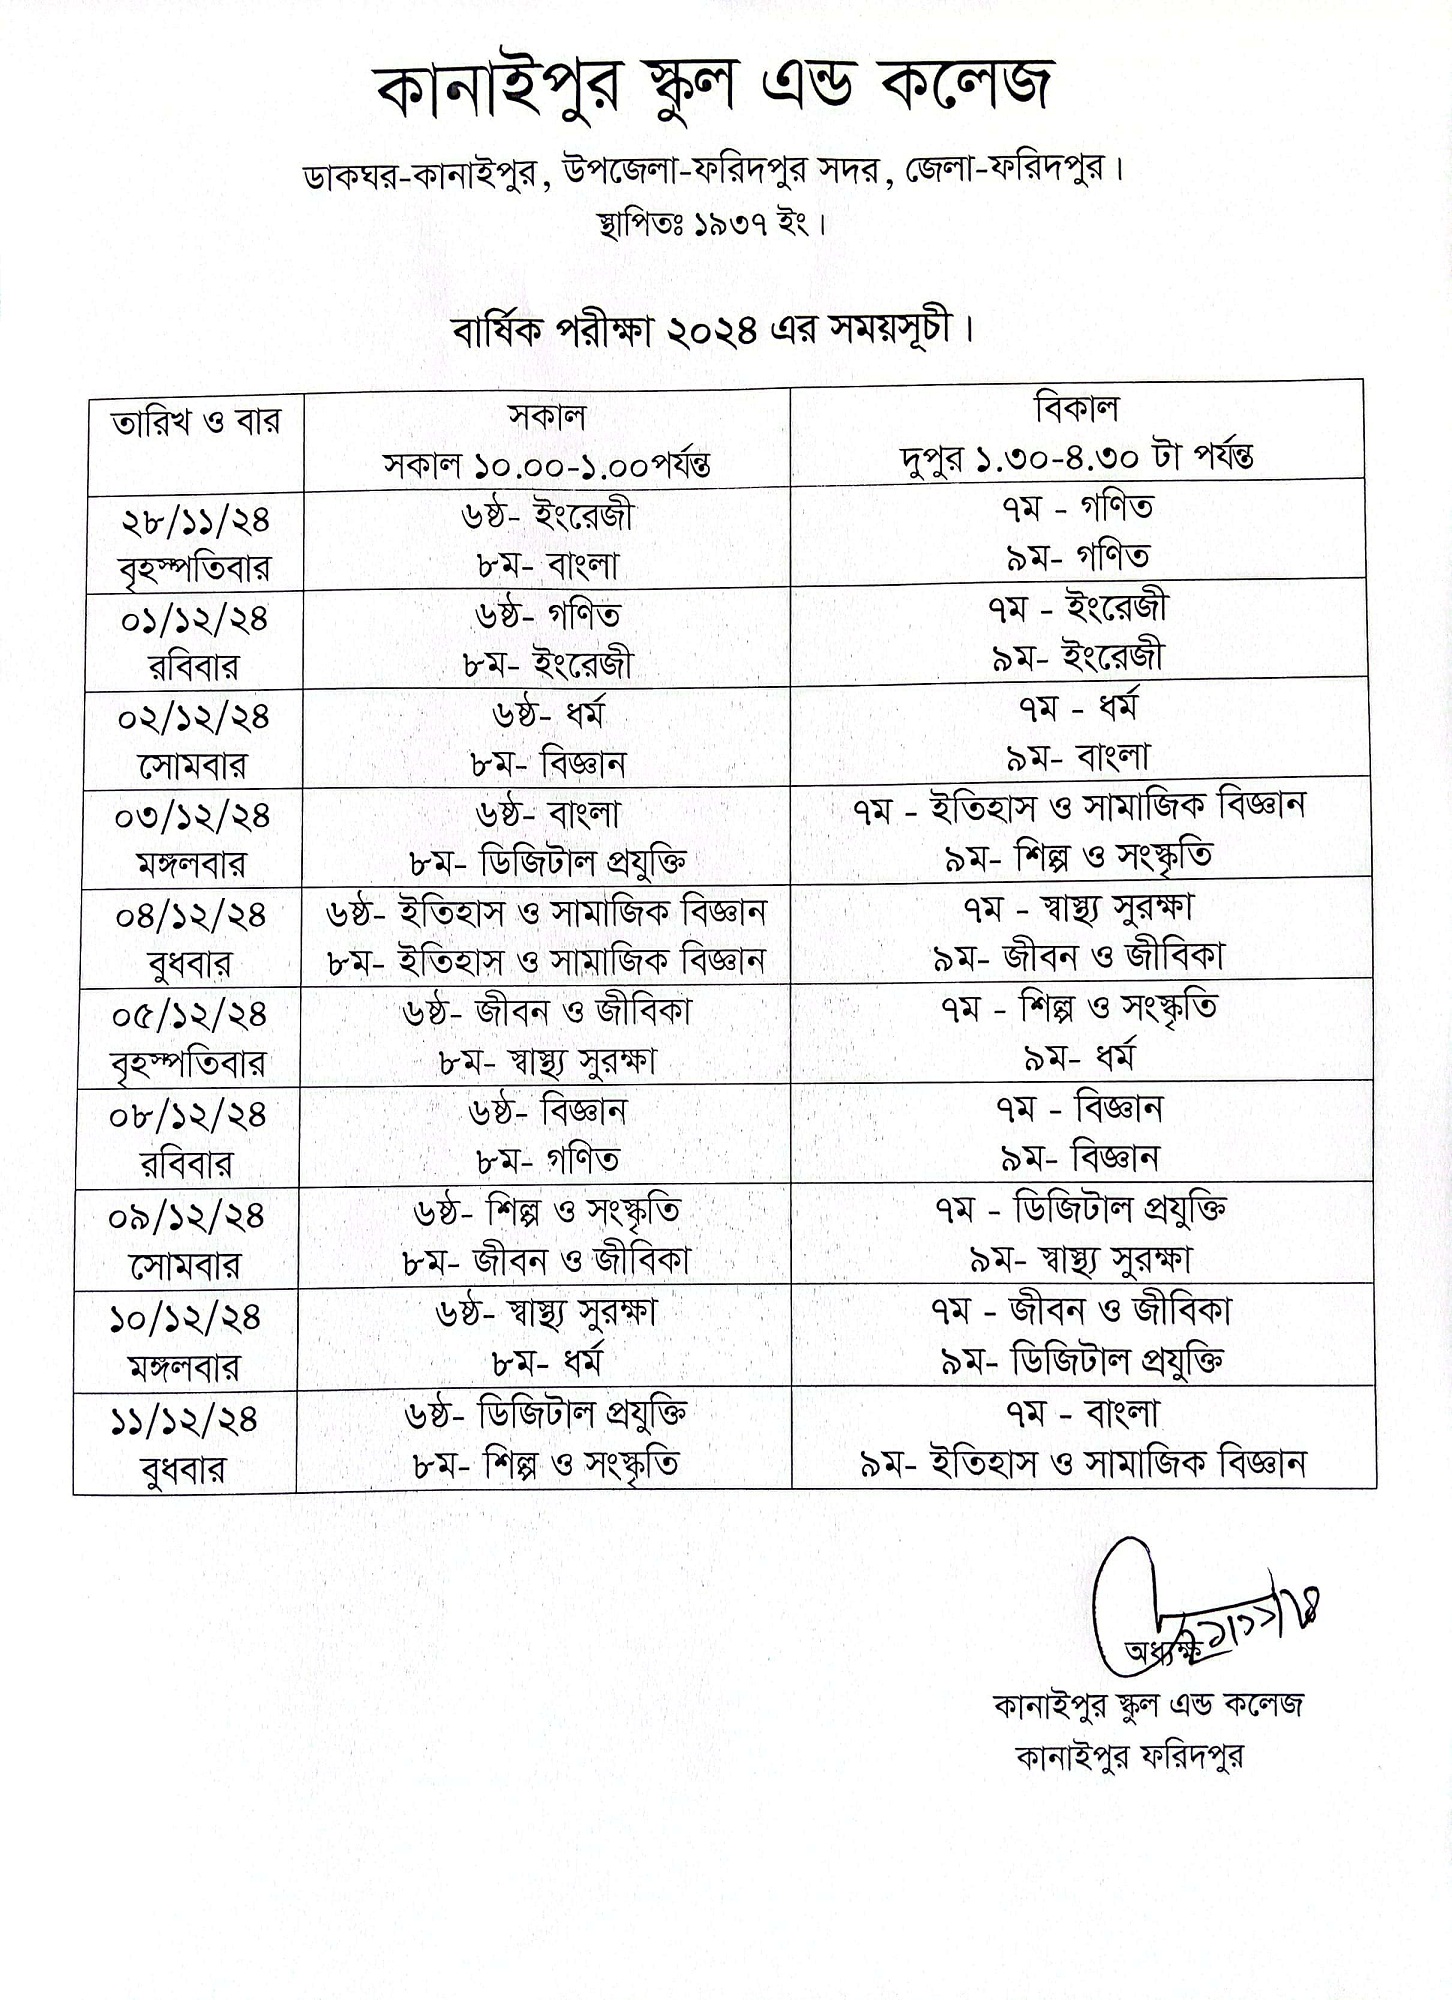 কানাইপুর স্কুল এন্ড কলেজ
ডাকঘর-কানাইপুর, উপজেলা-ফরিদপুর সদর, জেলা-ফরিদপুর।
স্থাপিতঃ ১৯৩৭ ইং।
বার্ষিক পরীক্ষা ২০২৪ এর সময়সূচী।
তারিখ ও বার
সকাল
সকাল ১০.০০-১.০০পর্যন্ত
বিকাল
দুপুর ১.৩০-৪.৩০ টা পর্যন্ত
২৮/১১/২৪
বৃহস্পতিবার
৬ষ্ঠ- ইংরেজী
৮ম- বাংলা
৭ম - গণিত
৯ম- গণিত
০১/১২/২৪
রবিবার
৬ষ্ঠ- গণিত
৮ম- ইংরেজী
৭ম - ইংরেজী
৯ম- ইংরেজী
০২/১২/২৪
সোমবার
৬ষ্ঠ- ধর্ম
৮ম- বিজ্ঞান
৭ম - ধর্ম
৯ম- বাংলা
০৩/১২/২৪
মঙ্গলবার
৬ষ্ঠ- বাংলা
৮ম- ডিজিটাল প্রযুক্তি
৭ম - ইতিহাস ও সামাজিক বিজ্ঞান
৯ম- শিল্প ও সংস্কৃতি
০৪/১২/২৪
বুধবার
৬ষ্ঠ- ইতিহাস ও সামাজিক বিজ্ঞান
৮ম- ইতিহাস ও সামাজিক বিজ্ঞান
৭ম - স্বাস্থ্য সুরক্ষা
৯ম- জীবন ও জীবিকা
০৫/১২/২৪
বৃহস্পতিবার
৬ষ্ঠ- জীবন ও জীবিকা
৮ম- স্বাস্থ্য সুরক্ষা
৭ম - শিল্প ও সংস্কৃতি
৯ম- ধর্ম
০৮/১২/২৪
রবিবার
৬ষ্ঠ- বিজ্ঞান
৮ম- গণিত
৭ম - বিজ্ঞান
৯ম- বিজ্ঞান
০৯/১২/২৪
সোমবার
৬ষ্ঠ- শিল্প ও সংস্কৃতি
৮ম- জীবন ও জীবিকা
৭ম - ডিজিটাল প্রযুক্তি
৯ম- স্বাস্থ্য সুরক্ষা
১০/১২/২৪
মঙ্গলবার
৬ষ্ঠ- স্বাস্থ্য সুরক্ষা
৮ম- ধর্ম
৭ম - জীবন ও জীবিকা
৯ম- ডিজিটাল প্রযুক্তি
১১/১২/২৪
বুধবার
৬ষ্ঠ- ডিজিটাল প্রযুক্তি
৮ম- শিল্প ও সংস্কৃতি
৭ম - বাংলা
৯ম- ইতিহাস ও সামাজিক বিজ্ঞান
অধ্যক্ষ
কানাইপুর স্কুল এন্ড কলেজ
কানাইপুর ফরিদপুর